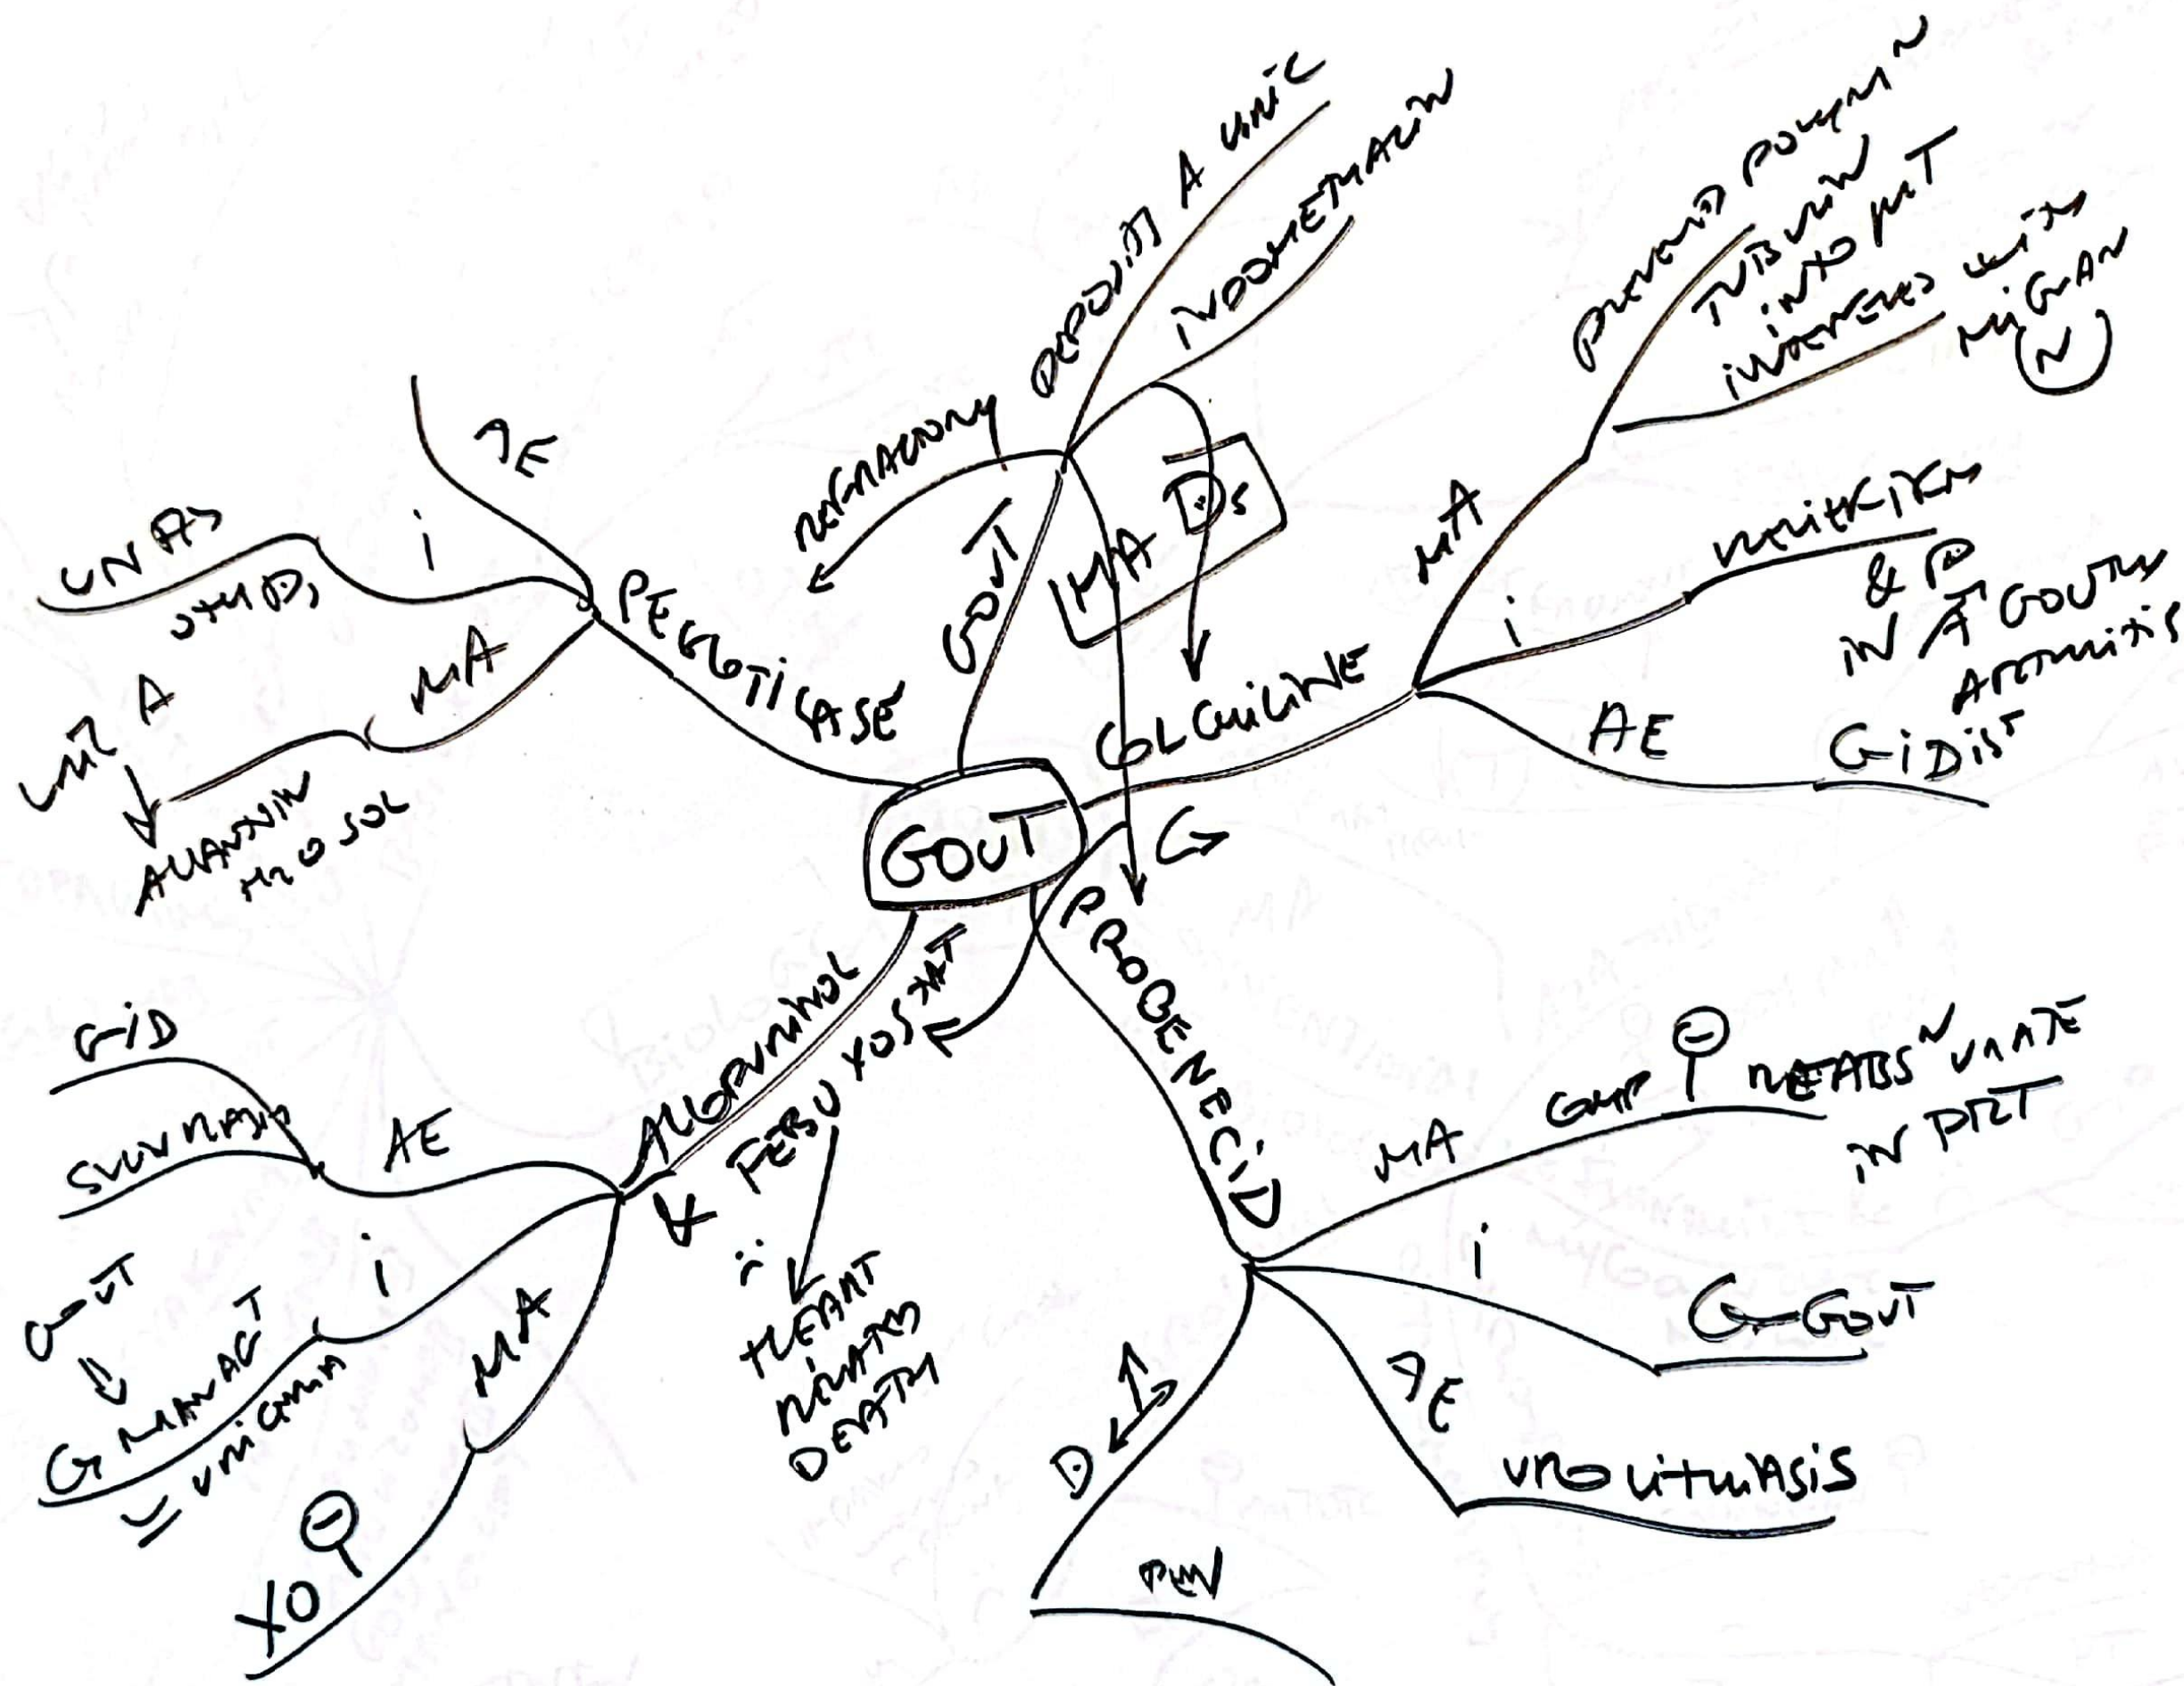 GOUT
GOUT
DEPOSIT A URIC
INDOMETHACIN
REFRACTORY
MA Ds
COLCHICINE
MA
PREVENTS POLYM N
TUBULIN
INTO MT
INTERFERES WITH
MIGRAN
N
i
RELIEF
& P
IN A GOUTY
ARTHRITIS
AE
GI DIST
C
PROBENECID
MA
COMP
REABS N URATE
IN PRT
i
C GOUT
AE
UROLITHIASIS
D
PEN
ALLOPURINOL
& FEBUXOSTAT
HEART
RELATED
DEATH
AE
GID
i
GOUT
G
MA
XO
PEGLOTICASE
AE
i
MA
URIC A
ALLANTOIN
H2O SOL